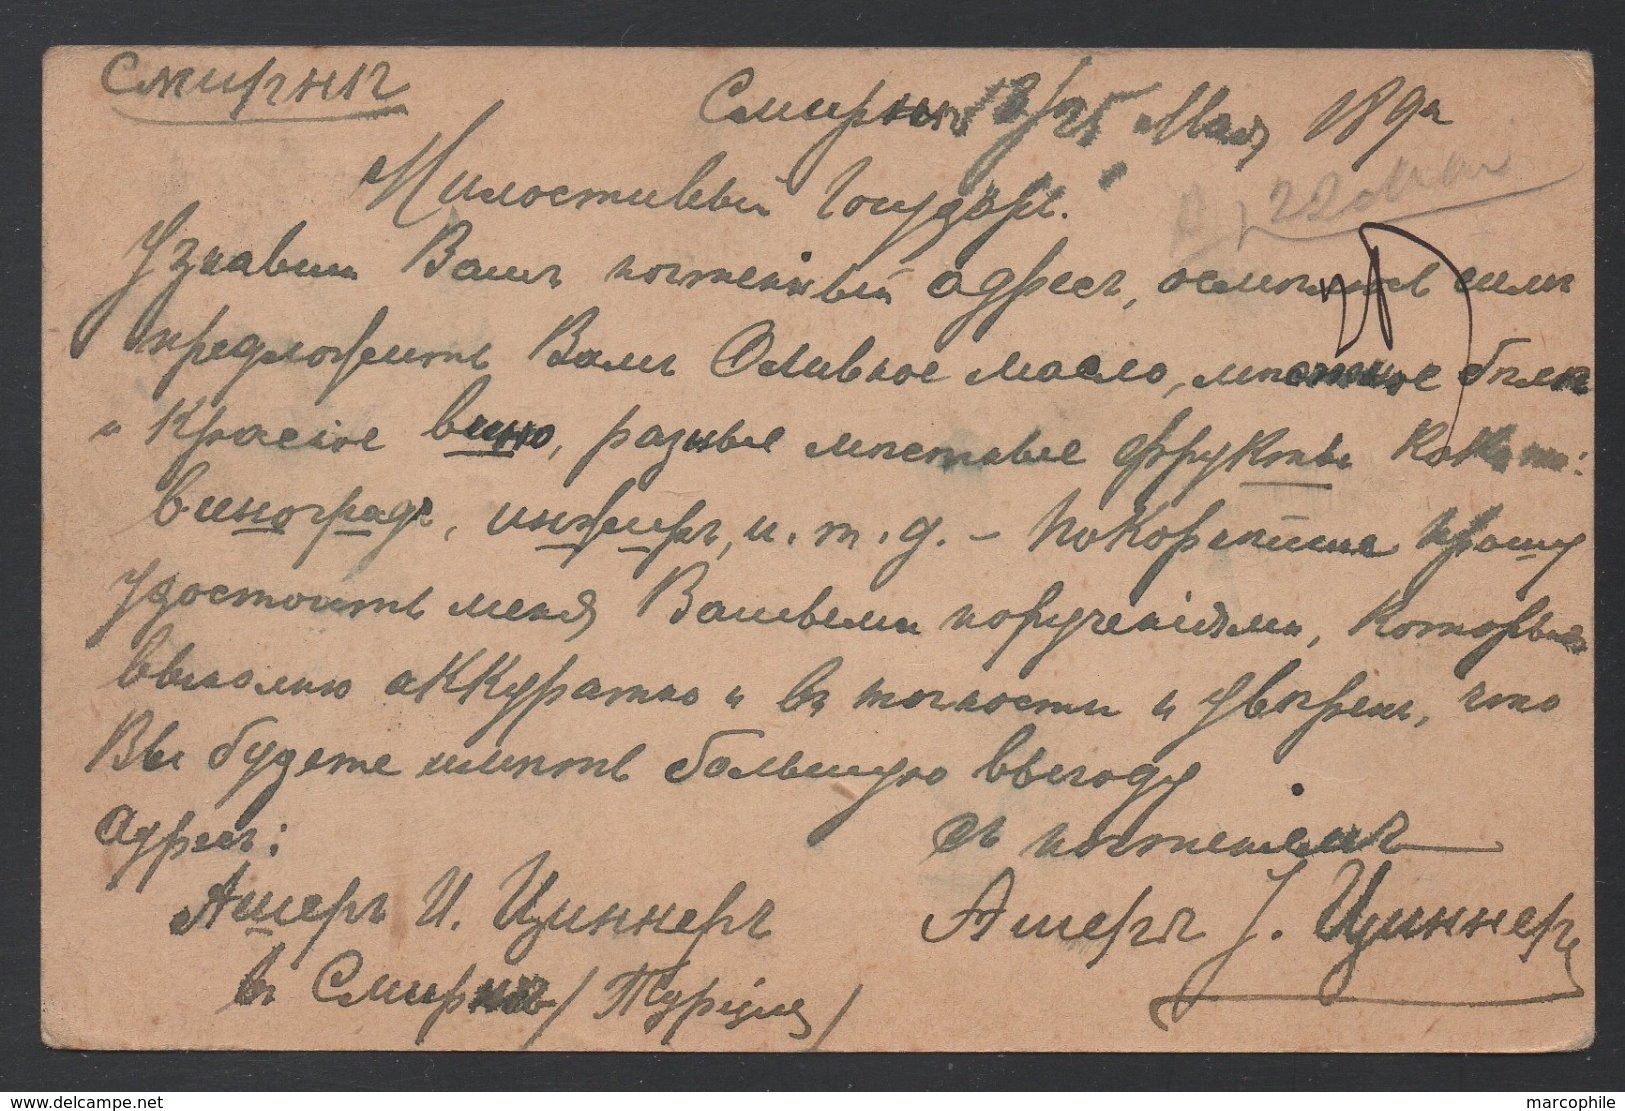 Смирна
Смирна 13/25 Мая 189
Милостивый Государь.
Узнавши Вашъ почтенный адресъ, осмѣлюсь симъ
предложить Вамъ Оливное масло, мѣстное бѣлое
и Красное вино, разные мѣстные фрукты какъ то:
виноградъ, инжиръ, и. т. д. – Покорнѣйше прошу
удостоить меня Вашыми порученіями, которые
выполню аккуратно и въ точности и увѣренъ, что
Вы будете имѣть большую выгоду
Адресъ:
съ почтеніемъ
Ашеръ И. Циннеръ
Ашеръ J. Циннеръ
въ Смирнѣ / Турція /
delcampe.net
marcophile